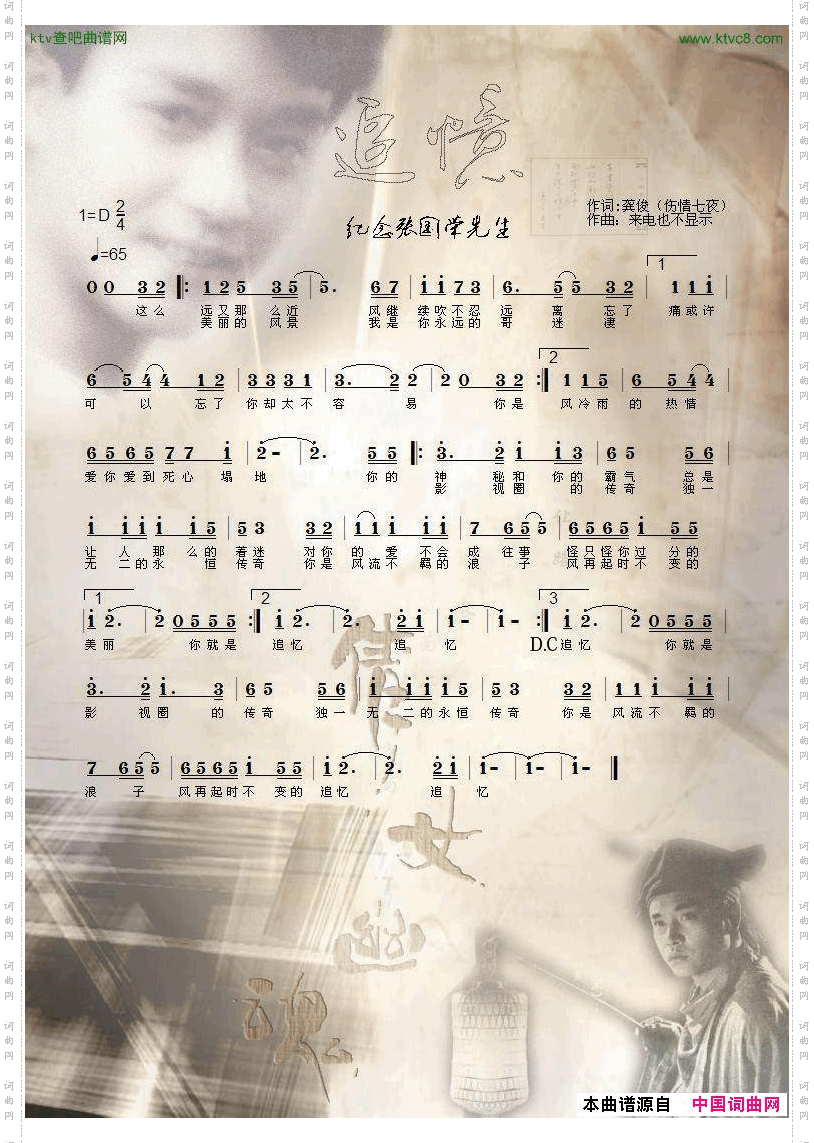 ktv查吧曲谱网
www.ktvc8.com
追忆
作词:龚俊（伤情七夜）
作曲：来电也不显示
1=D 2/4
纪念张国荣先生
♩=65
0 0 3 2 ‖: 1 2 5 3 5 | 5. 6 7 | i i 7 3 | 6. 5 5 3 2 | 1 1 i
这么 远又那么近 风继续吹不忍远离 忘了 痛或许
美丽的风景 我是你永远的哥 迷凄
6 5 4 4 1 2 | 3 3 3 1 | 3. 2 2 | 2 0 3 2 :‖ 1 1 5 | 6 5 4 4
可以 忘了你却太不容易 你是 风冷雨的热情
6 5 6 5 7 7 i | 2 - | 2. 5 5 ‖: 3. 2 i | i 3 6 5 5 6
爱你爱到死心塌地 你的 神秘和你的霸气 总是
影视圈的传奇 独一
i i i i i 5 | 5 3 3 2 | i i i i i | 7 6 5 5 | 6 5 6 5 i 5 5
让人那么的着迷 对你的爱不会成往事 怪只怪你过分的
无二的永恒传奇 你是风流不羁的浪子 风再起时不变的
1 2 3
i 2. | 2 0 5 5 5 5 :‖ i 2. | 2. 2 i | i - | i - :‖ i 2. | 2 0 5 5 5 5
美丽 你就是 追忆 追忆 D.C 追忆 你就是
3. 2 i. 3 | 6 5 5 6 | i i i i i 5 | 5 3 3 2 | 1 1 i i i
影视圈的传奇 独一无二的永恒传奇 你是风流不羁的
7 6 5 5 | 6 5 6 5 i 5 5 | i 2. | 2. 2 i | i - | i - | i - ‖
浪子 风再起时不变的追忆 追忆
倩女幽魂
本曲谱源自 中国词曲网